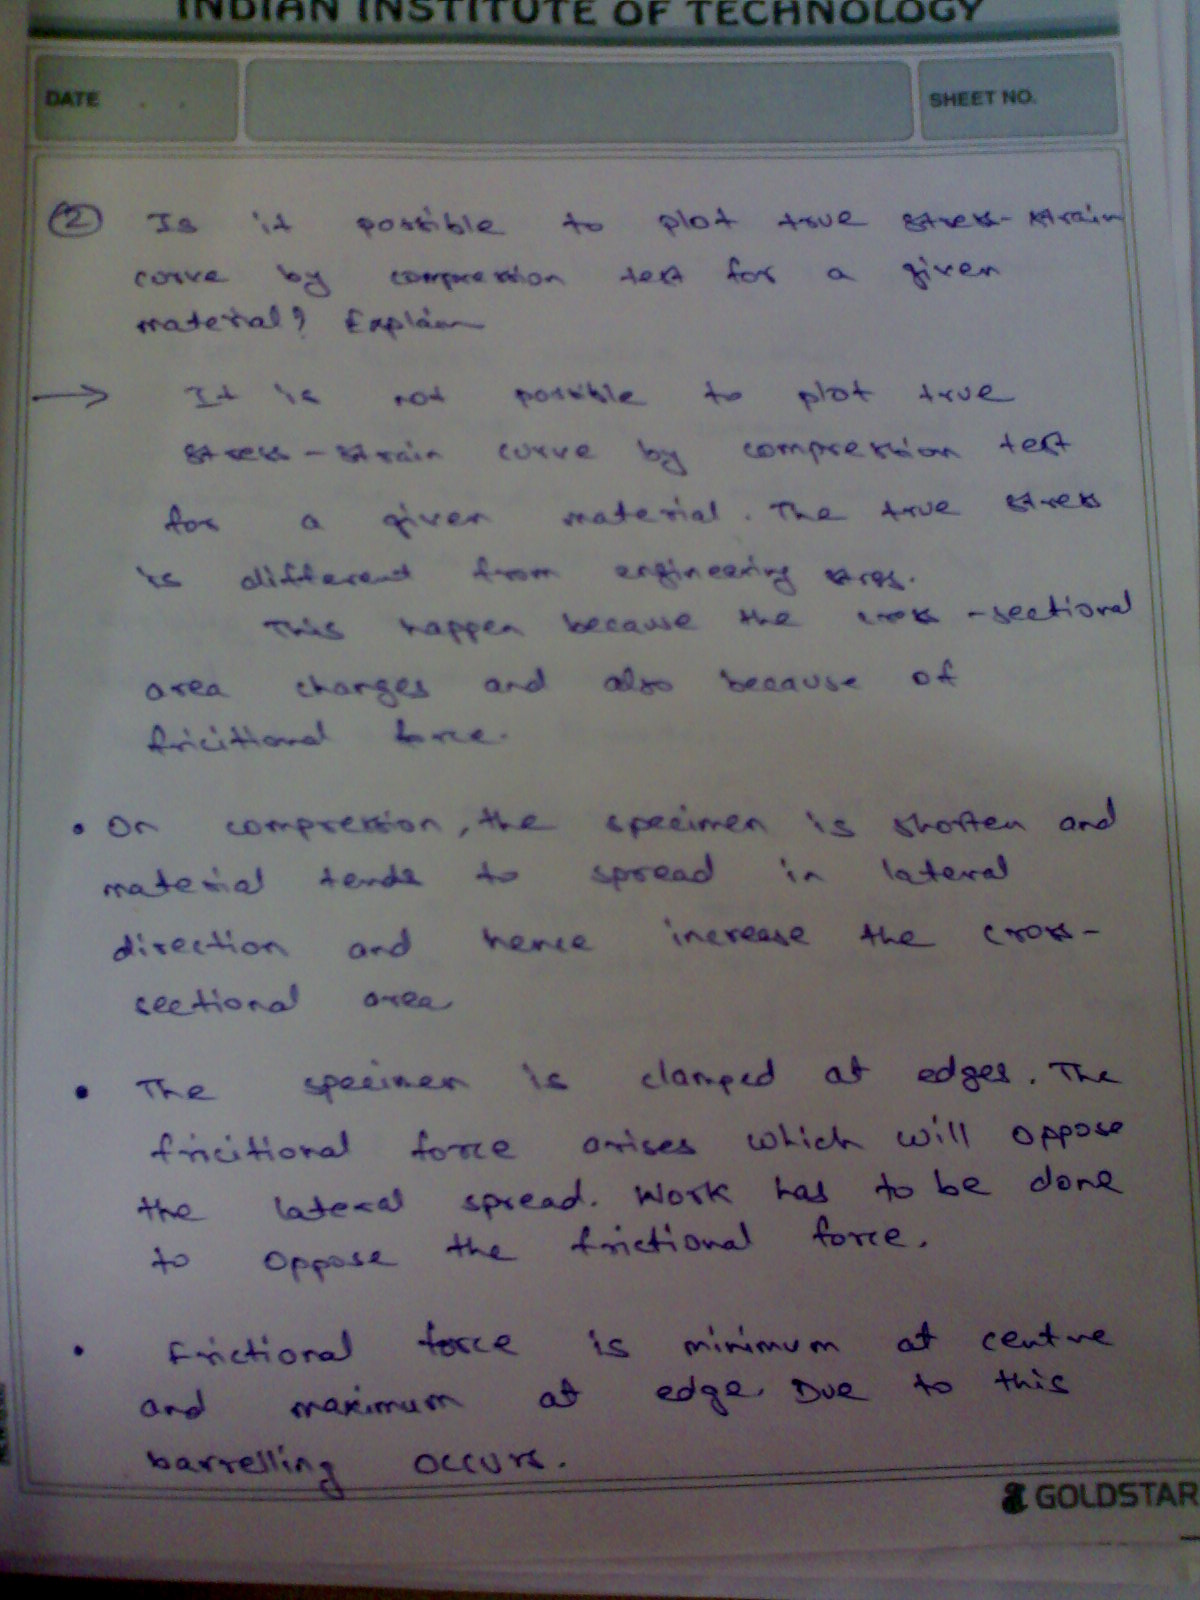 INDIAN INSTITUTE OF TECHNOLOGY
DATE
SHEET NO.
② Is it possible to plot true stress-strain
curve by compression test for a given
material? Explain
→ It is not possible to plot true
stress-strain curve by compression test
for a given material. The true stress
is different from engineering stress.
This happen because the cross-sectional
area changes and also because of
fricitional force.
• On compression, the specimen is shorten and
material tends to spread in lateral
direction and hence increase the cross-
sectional area
• The specimen is clamped at edges. The
fricitional force arises which will oppose
the lateral spread. Work has to be done
to oppose the frictional force.
• Frictional force is minimum at centre
and maximum at edge. Due to this
barrelling occurs.
GOLDSTAR